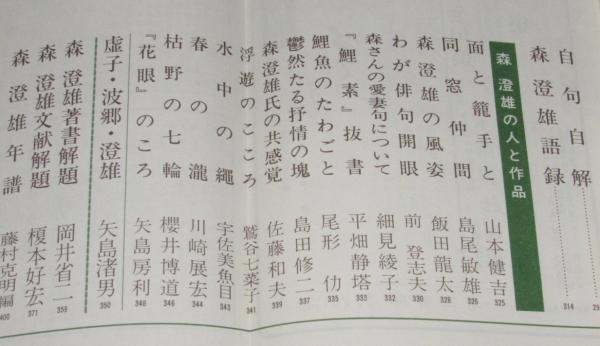 自句自解 29
森澄雄語録 314
森澄雄の人と作品
面と籠手と 山本健吉 325
同窓仲間 島尾敏雄 326
森澄雄の風姿 飯田龍太 328
わが俳句開眼 前登志夫 330
森さんの愛妻句について 細見綾子 332
『鯉素』抜書 平畑静塔 333
鯉魚のたわごと 尾形仂 335
鬱然たる抒情の塊 島田修二 337
森澄雄氏の共感覚 佐藤和夫 339
浮遊のこころ 鷲谷七菜子 341
水中の縄 宇佐美魚目 343
春の瀧 川崎展宏 344
枯野の七輪 櫻井博道 346
『花眼』のころ 矢島房利 348
虚子・波郷・澄雄 矢島渚男 350
森澄雄著書解題 岡井省二 359
森澄雄文献解題 榎本好宏 371
森澄雄年譜 藤村克明編 400